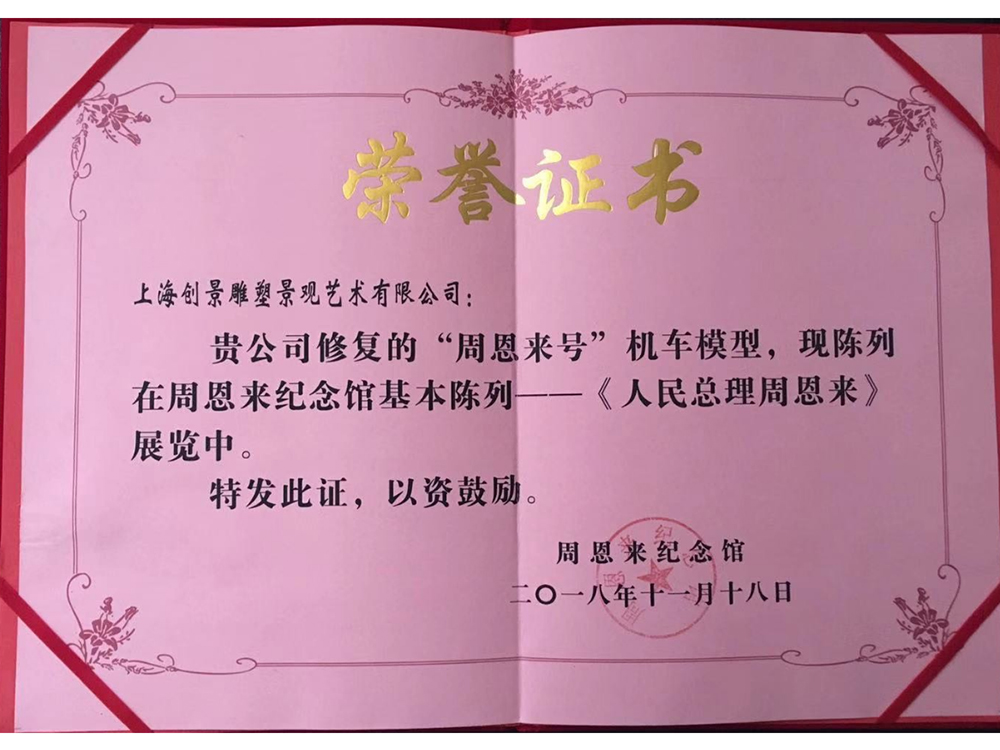 荣誉证书
上海创景雕塑景观艺术有限公司：
贵公司修复的“周恩来号”机车模型，现陈列
在周恩来纪念馆基本陈列——《人民总理周恩来》
展览中。
特发此证，以资鼓励。
周恩来纪念馆
二〇一八年十一月十八日